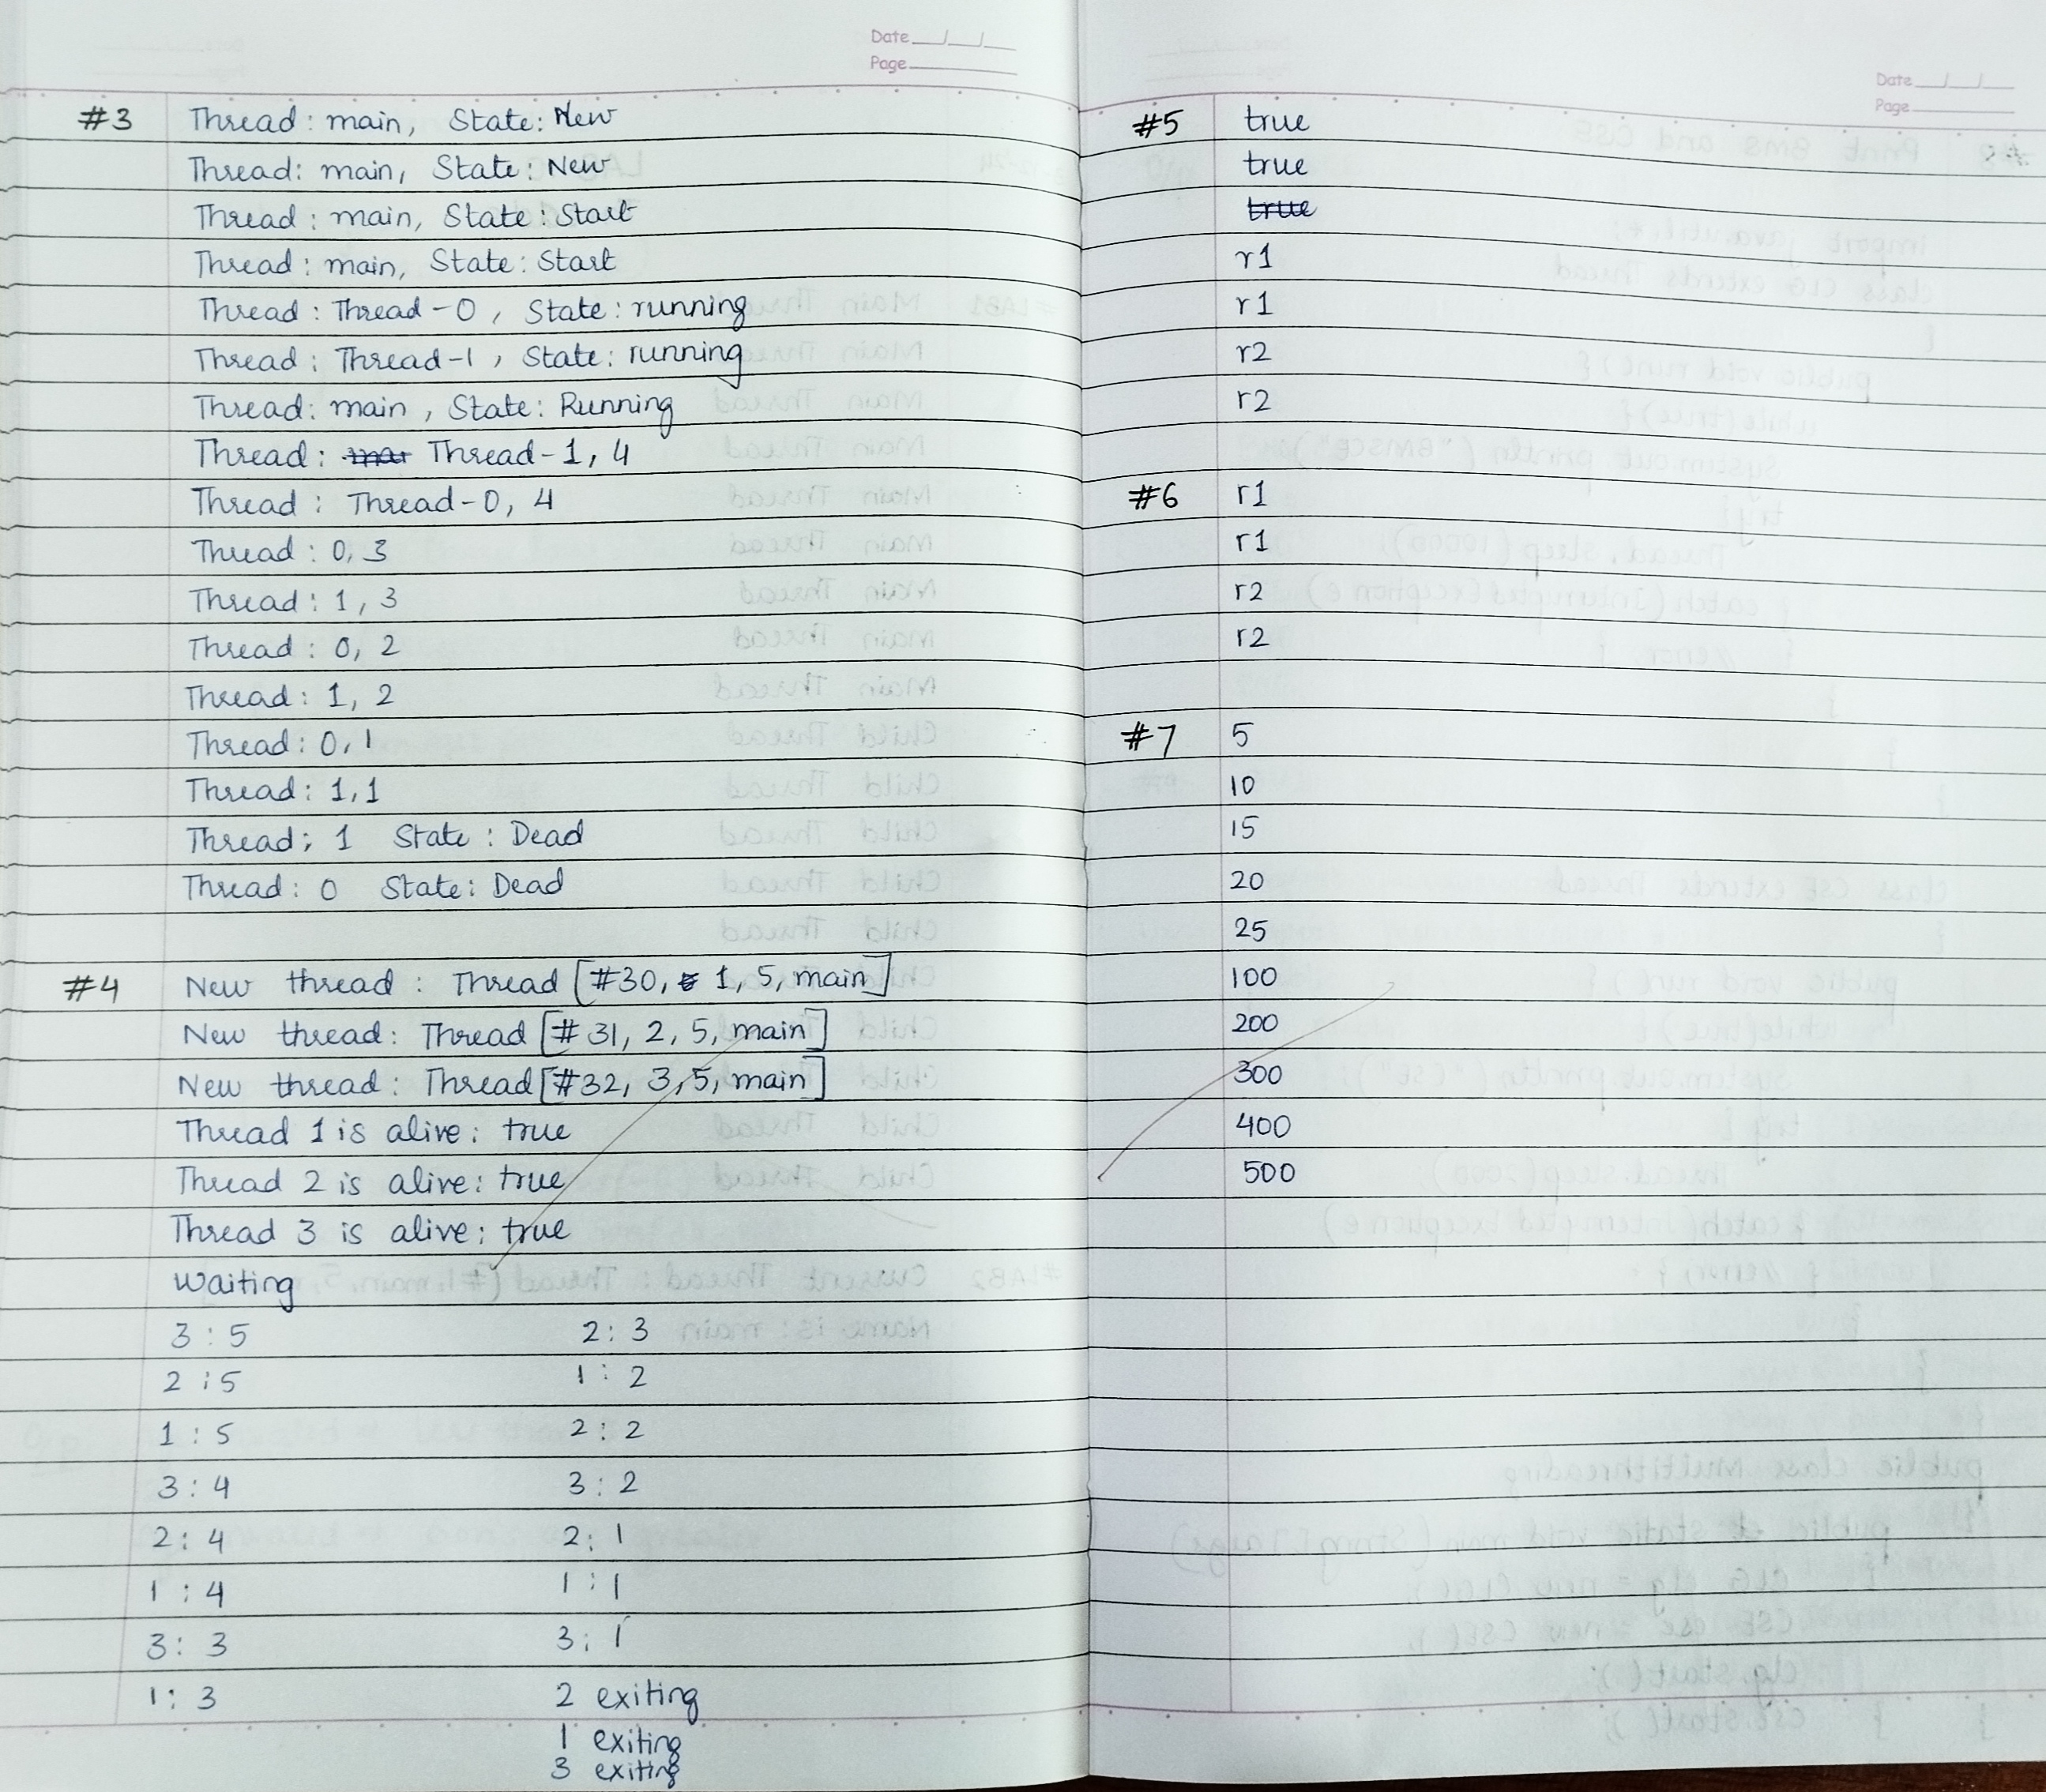 Date
Page
#3 Thread: main, State: New
Thread: main, State: New
Thread: main, State: Start
Thread: main, State: Start
Thread: Thread-0, State: running
Thread: Thread-1, State: running
Thread: main, State: Running
Thread: Thread-1, 4
Thread: Thread-0, 4
Thread: 0, 3
Thread: 1, 3
Thread: 0, 2
Thread: 1, 2
Thread: 0, 1
Thread: 1, 1
Thread: 1 State: Dead
Thread: 0 State: Dead
#4 New thread: Thread [#30, 1, 5, main]
New thread: Thread [#31, 2, 5, main]
New thread: Thread [#32, 3, 5, main]
Thread 1 is alive: true
Thread 2 is alive: true
Thread 3 is alive: true
Waiting
3 : 5
2 : 5
1 : 5
3 : 4
2 : 4
1 : 4
3 : 3
1 : 3
2 : 3
1 : 2
2 : 2
3 : 2
2 : 1
1 : 1
3 : 1
2 exiting
1 exiting
3 exiting
Date
Page
#5 true
true
true
r1
r1
r2
r2
#6 r1
r1
r2
r2
#7 5
10
15
20
25
100
200
300
400
500